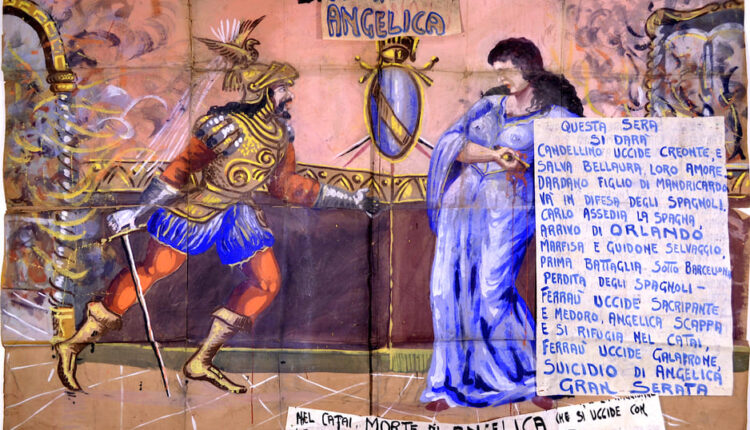 ANGELICA
QUESTA SERA
SI DARÀ
CANDELLINO UCCIDE CREONTE, E
SALVA BELLAURA, LORO AMORE
DARDANO FIGLIO DI MANDRICARDO
VA' IN DIFESA DEGLI SPAGNOLI.
CARLO ASSEDIA LA SPAGNA
ARRIVO DI ORLANDO
MARFISA E GUIDONE SELVAGGIO.
PRIMA BATTAGLIA SOTTO BARCELLONA
PERDITA DEGLI SPAGNOLI-
FERRAÙ UCCIDE SACRIPANTE
E MEDORO, ANGELICA SCAPPA
E SI RIFUGIA NEL CATAI,
FERRAÙ UCCIDE GALAFRONE,
SUICIDIO DI ANGELICA
GRAN SERATA
NEL CATAI, MORTE DI ANGELICA CHE SI UCCIDE CON